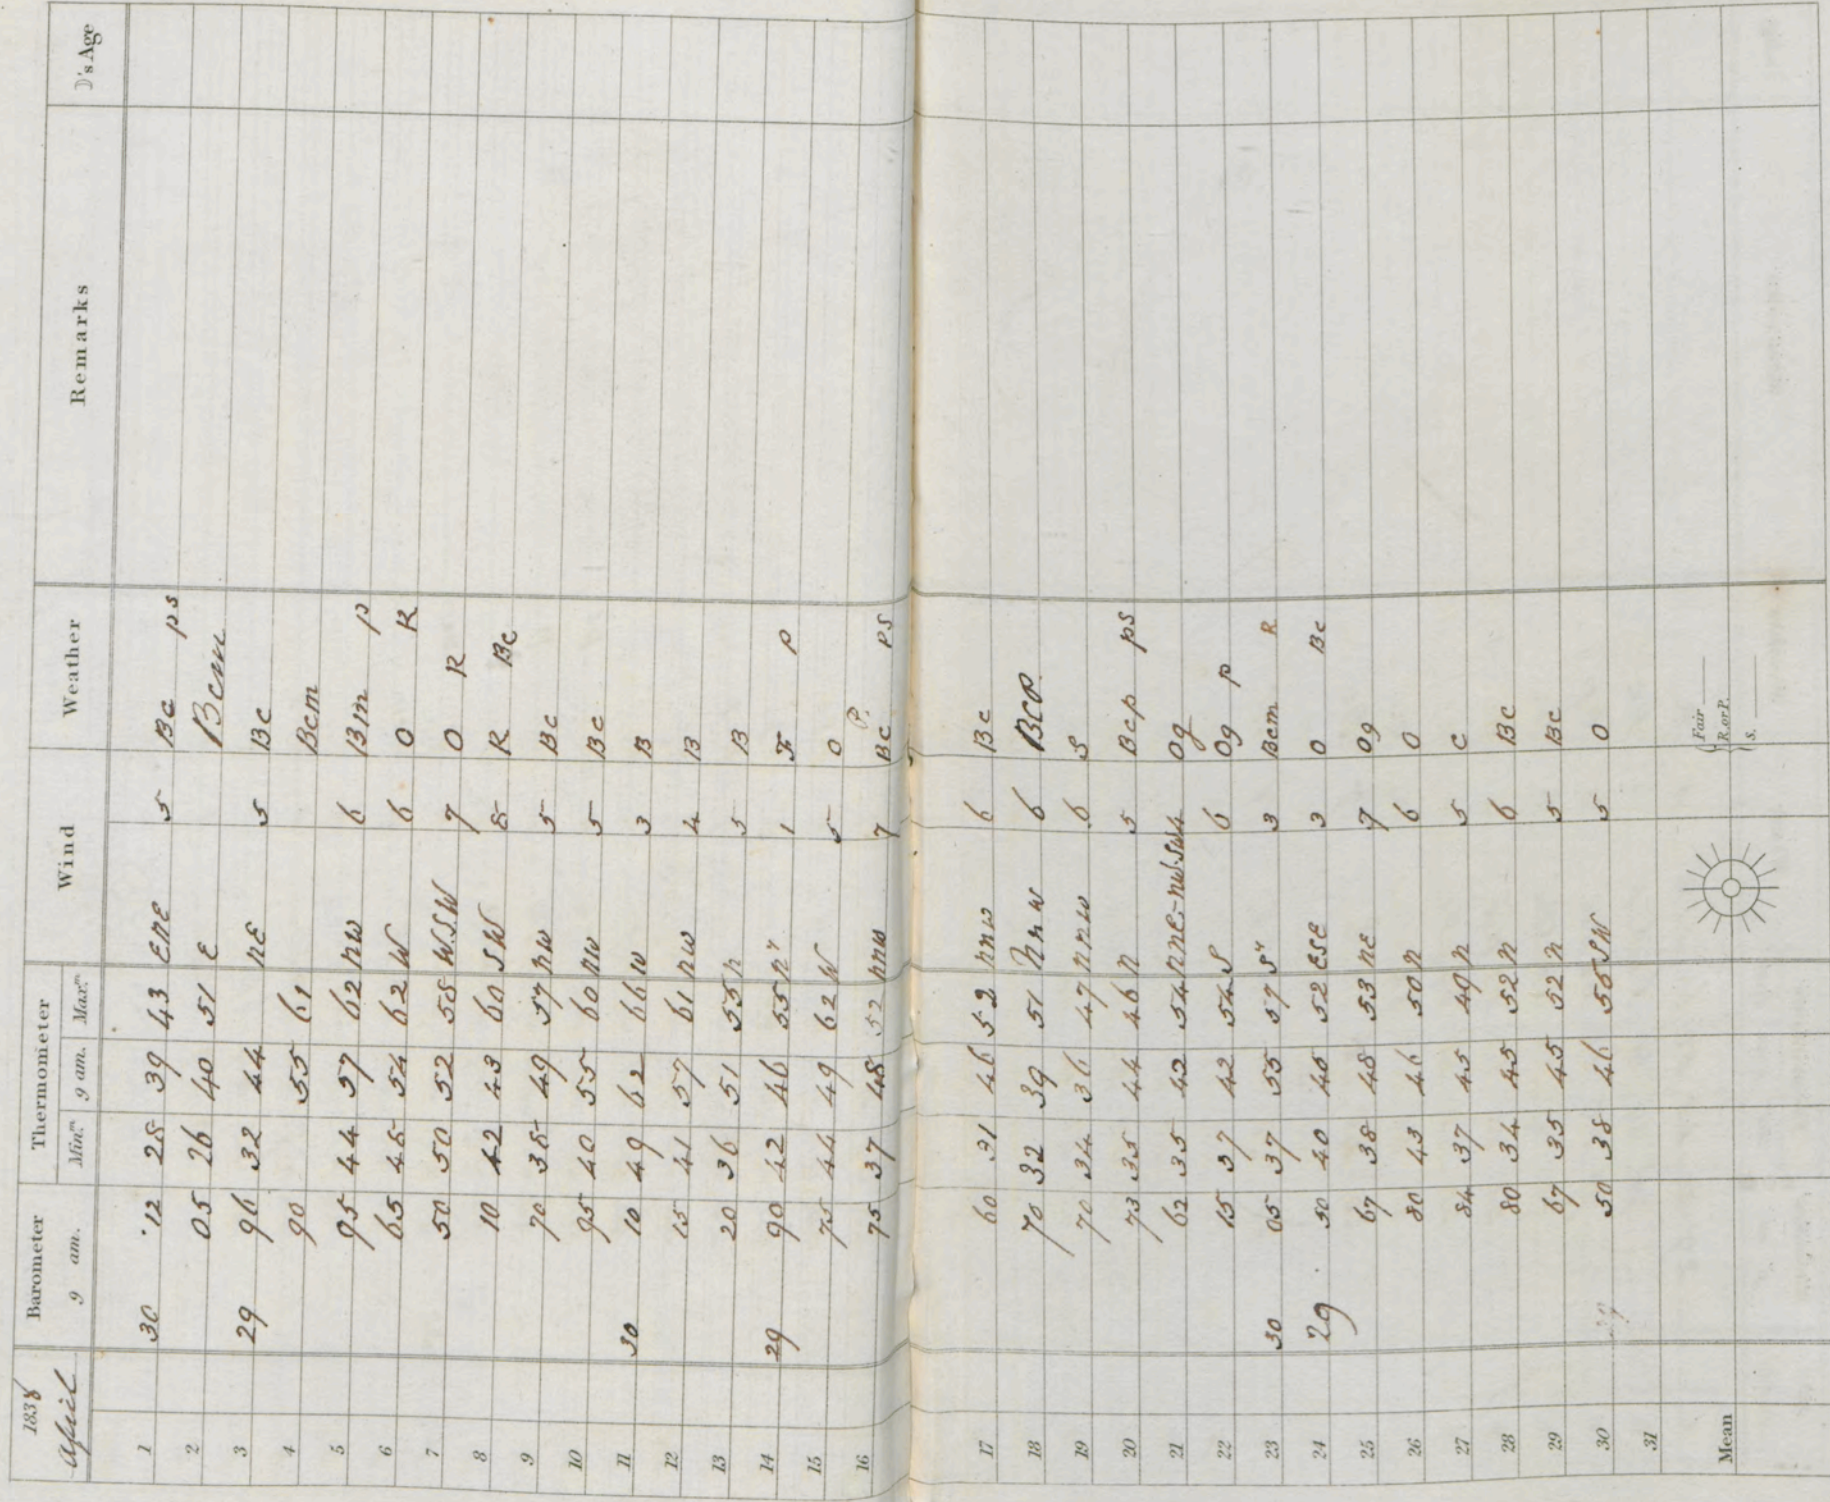 1838 April Barometer Thermometer Wind Weather Remarks D's Age
9 am. Min.m 9 am. Max.m
1 30 .12 28 39 43 ENE 5 Bc ps
2 05 26 40 51 E Bcm
3 29 96 32 44 NE 5 Bc
4 90 55 61 Bcm
5 95 44 57 62 NW 6 Bm p
6 65 48 54 62 W 6 O R
7 50 50 52 58 W.SW 7 O R
8 10 42 43 60 SW 8 R Bc
9 70 38 49 57 NW 5 Bc
10 95 40 55 60 NW 5 Bc
11 30 10 49 62 66 W 3 B
12 15 41 57 61 NW 4 B
13 20 36 51 55 N 5 B
14 29 90 42 46 55 N 1 F p
15 75 44 49 62 W 5 O
16 75 37 48 52 NNW 7 Bc P. ps
17 60 31 46 52 NNW 6 Bc
18 70 32 39 51 NNW 6 BcP
19 70 34 36 47 NNW 6 S
20 73 35 44 46 N 5 Bcp ps
21 62 35 42 54 NNE-NW.SW 4 Og
22 15 37 42 54 S 6 Og p
23 30 05 37 55 57 S 3 Bcm R
24 29 50 40 52 ESE 3 O Bc
25 67 38 48 53 NE 7 Og
26 80 43 46 50 N 6 O
27 84 37 45 49 N 5 C
28 80 34 45 52 N 6 Bc
29 67 35 45 52 N 5 Bc
30 29 50 38 46 SW 5 O
31
Mean Fair
R. or P.
S.